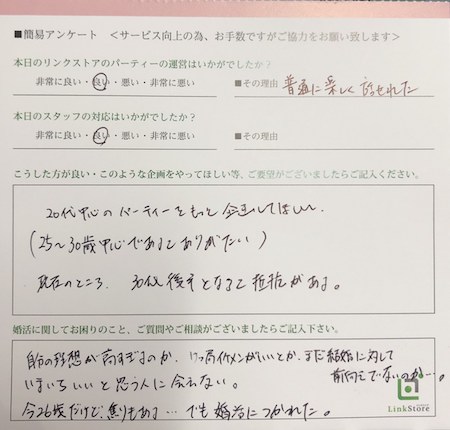 ■簡易アンケート ＜サービス向上の為、お手数ですがご協力をお願い致します＞
本日のリンクストアのパーティーの運営はいかがでしたか？
非常に良い・良い・悪い・非常に悪い ■その理由 普通に楽しく話せれた
本日のスタッフの対応はいかがでしたか？
非常に良い・良い・悪い・非常に悪い ■その理由
こうした方が良い・このような企画をやってほしい等、ご要望がございましたらご記入ください。
20代中心のパーティーをもっと企画してほしい
(25〜30歳中心であるとありがたい)
現在のところ、30代後半となると抵抗がある。
婚活に関してお困りのこと、ご質問やご相談がございましたらご記入下さい。
自分の理想が高すぎるのか、結局イケメンがいいとか、まだ結婚に対して
前向きでないのか…。
いまいちいいと思う人に会えない。
今26歳だけど、焦りもある…でも婚活につかれた。
LinkStore